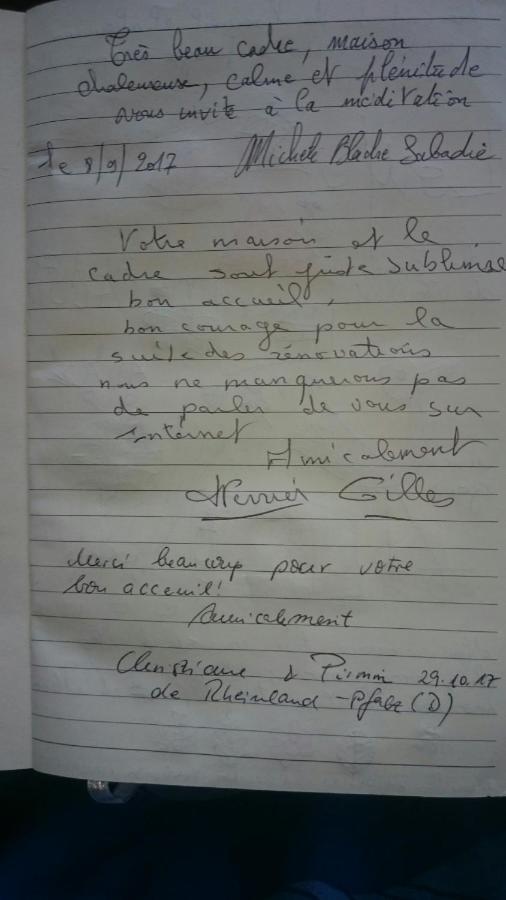 Très beau cadre, maison
chaleureuse, calme et plénitude
vous invite à la méditation
le 8/9/2017 Michèle
Votre maison et le
cadre sont juste sublimise
bon accueil,
bon courage pour la
suite des rénovations
nous ne manquerons pas
de parler de vous sur
Internet
Amicalement
Gilles
Merci beaucoup pour votre
bon acceuil!
Amicalement
Christiane & Pirmin 29.10.17
de Rheinland-Pfalz (D)